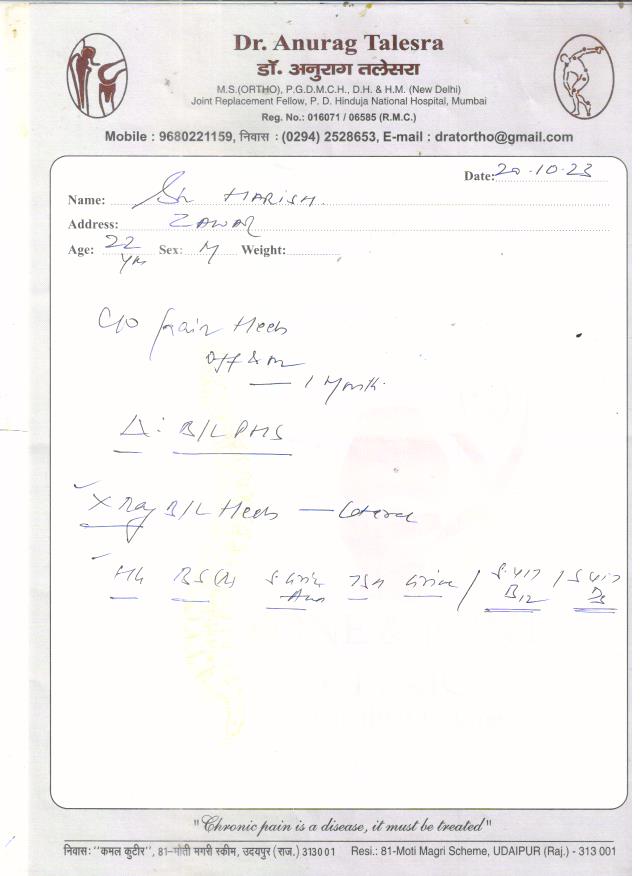 Dr. Anurag Talesra
डॉ. अनुराग तलेसरा
M.S.(ORTHO), P.G.D.M.C.H., D.H. & H.M. (New Delhi)
Joint Replacement Fellow, P. D. Hinduja National Hospital, Mumbai
Reg. No.: 016071 / 06585 (R.M.C.)
Mobile : 9680221159, निवास : (0294) 2528653, E-mail : dratortho@gmail.com
Date: 20.10.23
Name: Sh HARISH
Address: ZAWAR
Age: 22 yrs Sex: M Weight:
C/O pain Heels
off & on
— 1 Month.
Δ: B/L PHS
X Ray B/L Heels — Lateral
Hb BS(R) S. Uric Acid TSH Urine / S. Vit B12 / S Vit D3
"Chronic pain is a disease, it must be treated"
निवास: "कमल कुटीर", 81-मोती मगरी स्कीम, उदयपुर (राज.) 313001 Resi.: 81-Moti Magri Scheme, UDAIPUR (Raj.) - 313 001